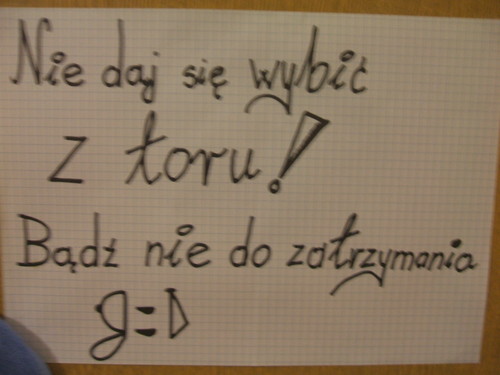 Nie daj się wybić
z toru!
Bądź nie do zatrzymania
g=D